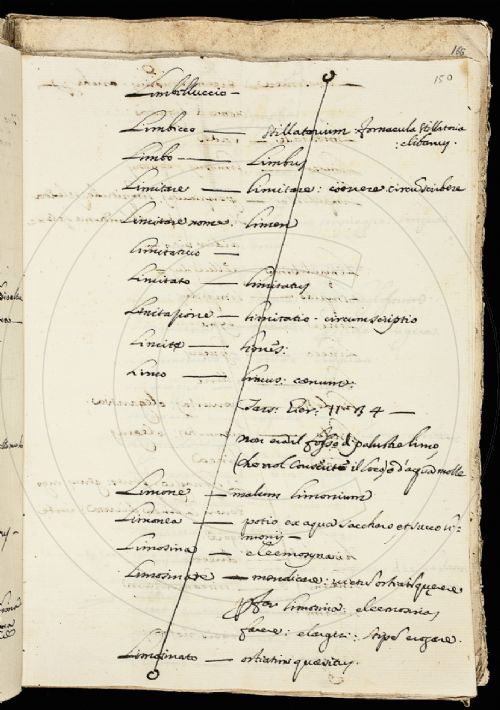 166
150
Limbelluccio —
Limbicco — stillatorium fornacula stillatoria
clibanus.
Limbo — Limbus
Limitare — limitare: coercere circuscribere
Limitare nome: limen
Limitativo —
Limitato — limitatus
Limitasione — limitatio. circumscriptio
Limite — limes:
Limo — limus: coenum:
Tass:
non era il fosso di palustre limo,
(che nol consente il loco) o d'aqua molle
Limone — malum limonium
Limonea — potio ex aqua saccharo et succo li-
monij —
Limosina — eleemosyna
Limosinare — mendicare: ostiatim querere
far limosina: eleemosinas
facere: elargiri: stipes erogare.
Limosinato — ostiatim quaesitus.